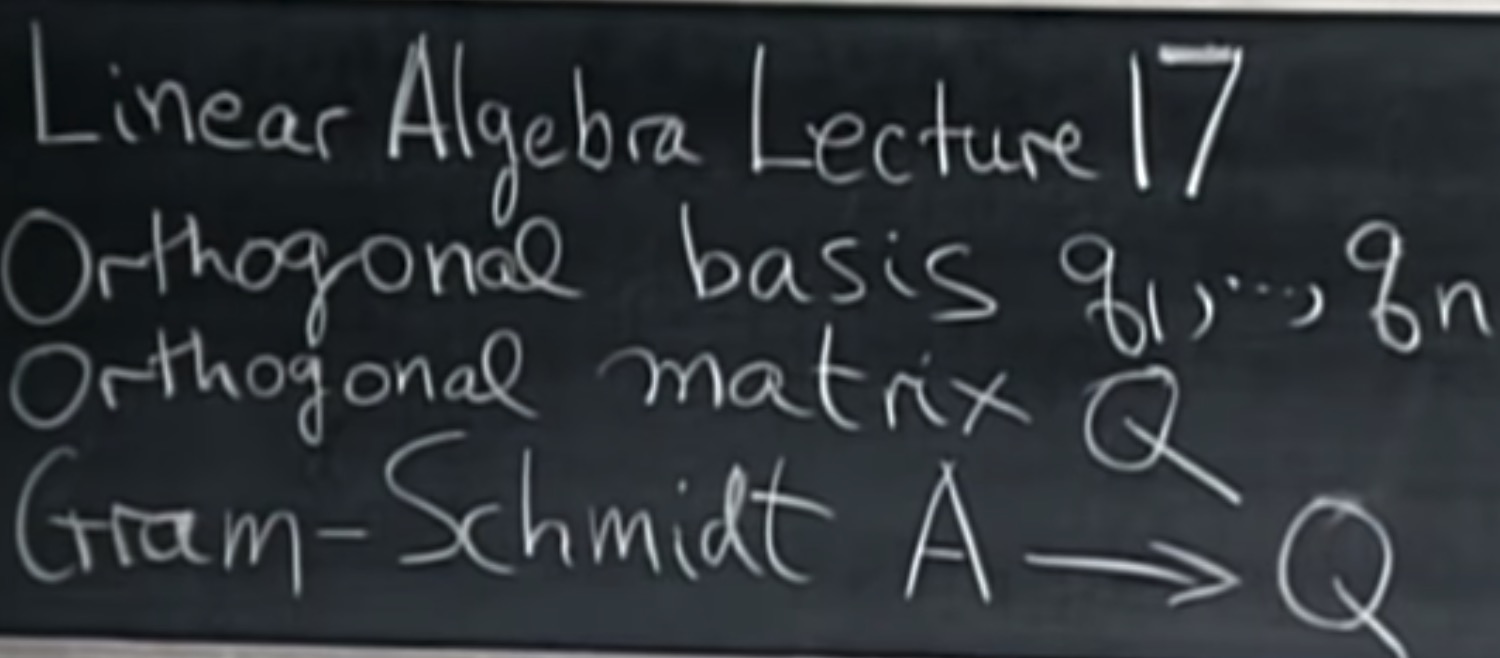 Linear Algebra Lecture 17
Orthogonal basis q1,...,qn
Orthogonal matrix Q
Gram-Schmidt A → Q